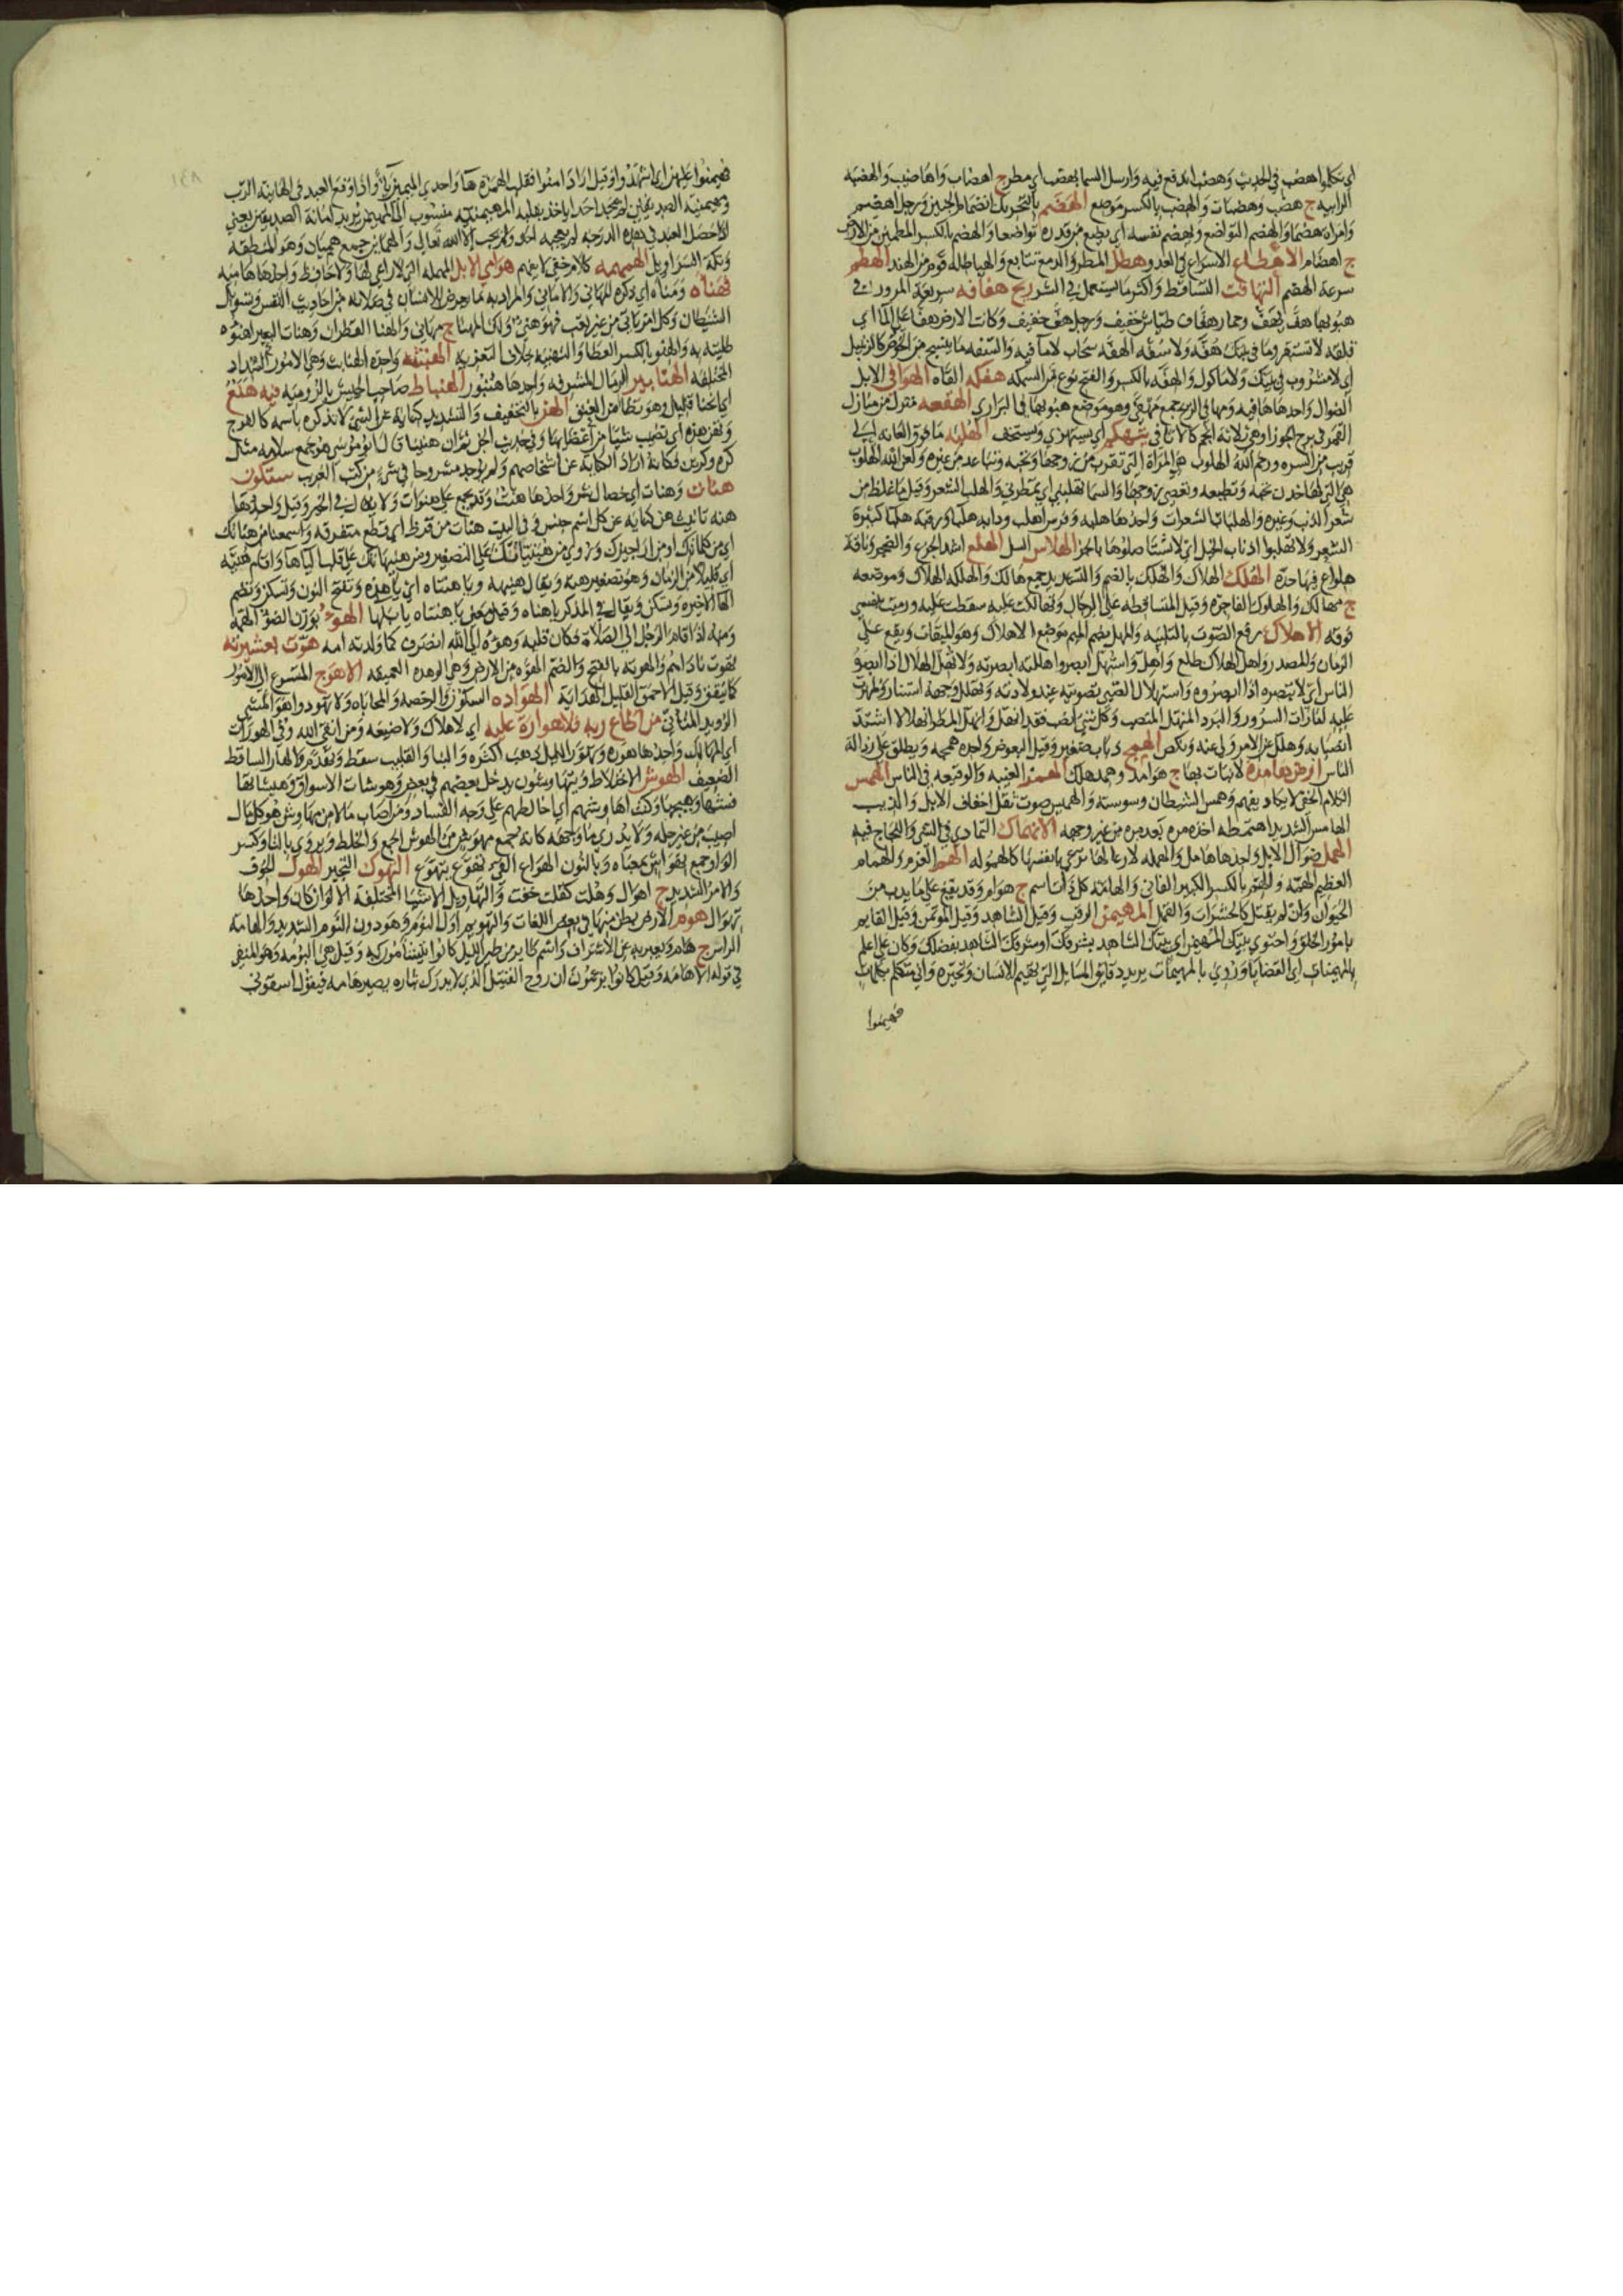 اي تكلموا هضب في الحديث وهضب اندفع فيه وارسل السما بهضب اي مطر ج اهضاب واهاضيب والهضبه
الرابيه ج هضب وهضبات والهضب بالكسر موضع الهضم بالتحريك انضمام الجنبين ورجل اهضم
وامراة هضما والهضم التواضع ويهضم نفسه اي يضع من قدره تواضعا والهضم بالكسر المطمئن من الارض
ج اهضام الاهطاع الاسراع في العدو هطل المطر والدمع تتابع والهياطله قوم من الهند الهطم
سرعة الهضم التهافت التساقط واكثر ما يستعمل في الشر ريح هفافه سريعة المرور في
هبوبها هف يهف وحمار هفاف طياش خفيف ورجل هف خفيف وكانت الارض هفا على الما اي
قلقه لا تستقر وما في بيتك هفه ولا سفه الهفه سحاب لا ما فيه والسفه ما ينسج من الخوص كالزنبيل
اي لا مشروب في بيتك ولا ماكول والهفه بالكسر والفتح نوع من السمك هفكه القاه الهوافي الابل
الضوال واحدها هافيه ومهافي الريح جمع مهفى وهو موضع هبوبها في البراري الهقعه منزل من منازل
القمر في برج الجوزا وهي ثلاثة انجم كالاثافي يتهكم اي يستهزي ويستخف الهلبه ما فوق العانه الى
قريب من السره ورحم الله الهلوب هي المراة التي تقرب من زوجها وتحبه وتتباعد من غيره ولعن الله الهلوب
هي التي لها خدن تحبه وتطيعه وتعصي زوجها والسما تهلبني اي تمطرني والهلب الشعر وقيل ما غلظ من
شعر الذنب وغيره والهلبات الشعرات واحدها هلبه وفرس اهلب ودابه هلبا ورقبه هلبا كثيرة
الشعر ولا تهلبوا اذناب الخيل اي لا تستاصلوها بالجز الهلاس السل الهلع اشد الجزع والضجر وناقة
هلواع فيها حدة الهلك الهلاك والهلك بالضم والتشديد جمع هالك والهلكه الهلاك وموضعه
ج مهالك والهلوك الفاجرة وقيل المتساقطه على الرجال وتهالكت عليه سقطت عليه ورميت بنفسي
فوقه الاهلال رفع الصوت بالتلبيه والمهل بضم الميم موضع الاهلال وهو الميقات ويقع على
الزمان والمصدر واهل الهلال طلع واهل واستهل ابصر واهللته ابصرته ولا تهل الهلال اذا ابصره
الناس اي لا تبصره اذا ابصروه واستهلال الصبي تصويته عند ولادته وتهلل وجهه استنار وظهرت
عليه امارات السرور والبرد المنهل المنصب وكل شي انصب فقد انهل وانهل المطر انهلالا اشتد
انصبابه وهلل عن الامر ولى عنه ونكص الهمج ذباب صغير وقيل البعوض واحده همجه ويطلق على رذالة
الناس ارض هامدة لا نبات بها ج هوامد وهمد هلك الهمز الغيبه والوقيعه في الناس الهمس
الكلام الخفي لا يكاد يفهم وهمس الشيطان وسوسته والهميس صوت نقل اخفاف الابل والذيب
الهامس الشديد اهتمطه اخذه مره بعد مره من غير وجهه الانهماك التمادي في الشي واللجاج فيه
الهمل ضوال الابل واحدها هامل والهمله لا رعا لها ترعى بانفسها كالهموله الهم العزم والهمام
العظيم الهمه والهم بالكسر الكبير الفاني والهامة كل ذات سم ج هوام وقد يقع على ما يدب من
الحيوان وان لم يقتل كالحشرات والقمل المهيمن الرقيب وقيل الشاهد وقيل الموتمن وقيل القايم
بامور الخلق واحتوى بيتك المهيمن اي بيتك الشاهد بشرفك او شرفك الشاهد بفضلك وكان علي اعلم
بالمهيمنات اي القضايا وروي بالمهيمات يريد دقايق المسايل التي تهيم الانسان وتحيره واني متكلم بكلمات
فهيمنوا
فهيمنوا عليهن اي اشهدوا وقيل اراد امنوا فقلب الهمزة ها واحدى الميمين يا واذا وقع العبد في الهانية الرب
ومهيمنية الصديقين لم يجد احدا ياخذ بقلبه المهيمنيه منسوب الى المهيمن يريد امانة الصديقين يعني
اذا حصل العبد في هذه الدرجه لم يعجبه احد ولم يحب الا الله تعالى والهمايين جمع هميان وهو المنطقة
وتكة السراويل الهمهمه كلام خفي لا يفهم هوامي الابل المهمله التي لا راعي لها ولا حافظ واحدها هاميه
فهناه ومناه اي ذكره المهاني والاماني والمراد به ما يعرض للانسان في صلاته من احاديث النفس وتسويل
الشيطان وكل امر ياتي من غير تعب فهو هني ولك المهنا ج مهاني والهنا القطران وهنات البعير اهنوه
طليته به والهنو بالكسر العطا والتهنيه خلاف التعزيه الهنبثه واحدة الهنابث وهي الامور الشداد
المختلفه الهنابير الرمال المشرفه واحدها هنبور الهنباط صاحب الجيش بالروميه فيه هنع
اي انحنا قليل وهو تطامن العنق الهن بالتخفيف والتشديد كناية عن الشي لا تذكره باسمه كالفرج
وتهن هذه اي تصيب شيئا من اعضايها وفي حديث الجن فاذا ان هنينا قال ابو موسى هو جمع سلامه مثل
كره وكرين فكانه اراد الكناية عن اشخاصهم ولم يوجد مشروحا في شي من كتب الغريب ستكون
هنات وهنات اي خصال شر واحدها هنت وقد تجمع على هنوات ولا يقال في الخير وقيل واحدتها
هنه تانيث هن كناية عن كل اسم جنس وفي البيت هنات من قرظ اي قطع متفرقه واسمعنا من هناتك
اي من كلماتك او من اراجيزك وروي من هنياتك على التصغير ومن هنيهاتك على قلب الياها واقام هنيه
اي قليلا من الزمان وهو تصغير هنه ويقال هنيهه ويا هنتاه اي يا هذه وتفتح النون وتسكن وتضم
الها الاخيره وتسكن ويقال في المذكر يا هناه وقيل معنى يا هنتاه يا بلها الهوء بوزن الضو الهمة
ومنه اذا قام الرجل الى الصلاة فكان قلبه وهوءه الى الله انصرف كما ولدته امه هوت بعشيرته
يهوت ناداهم والهوته بالفتح والضم الهوه من الارض وهي الوهده العميقه الاهوج المتسرع الى الامور
كما يتفق وقيل الاحمق القليل الهداية الهواده السكون والرخصه والمحاباه ولا تهودوا هو المشي
الرويد المتاني من اطاع ربه فلا هوارة عليه اي لا هلاك ولا ضيعه ومن اتقى الله وقي الهورات
اي المهالك واحدها هوره وتهور الليل ذهب اكثره والبنا والقليب سقط وتهدم والهار الساقط
الضعيف الهوش الاختلاط وبيتها ويهاوشون يدخل بعضهم في بعض وهوشات الاسواق وهيشاتها
فتنها وهيجها وكنت اهاوشهم اي اخالطهم على وجه الفساد ومن اصاب مالا من مهاوش هو كل مال
اصيب من غير حله ولا يدرى ما وجهه كانه جمع مهوش من الهوش الجمع والخلط ويروى بالتا وكسر
الواو جمع تهواش بمعناه وبالنون الهواع القي يهوع يتهوع التهوك التحير الهول الخوف
والامر الشديد ج اهوال وهلت كقلت خفت والتهاويل الاشيا المختلفة الالوان كان واحدها
تهوال هوم الارض بطن منها في بعض اللغات والتهويم اول النوم وهو دون النوم الشديد والهامه
الراس ج هام ويعبر به عن الاشراف واسم طاير من طير الليل كانوا يتشأمون به وقيل هي البومه وهو المنفي
في قوله لا هامه وقيل كانوا يزعمون ان روح القتيل الذي لا يدرك بثاره يصير هامه فيقول اسقوني